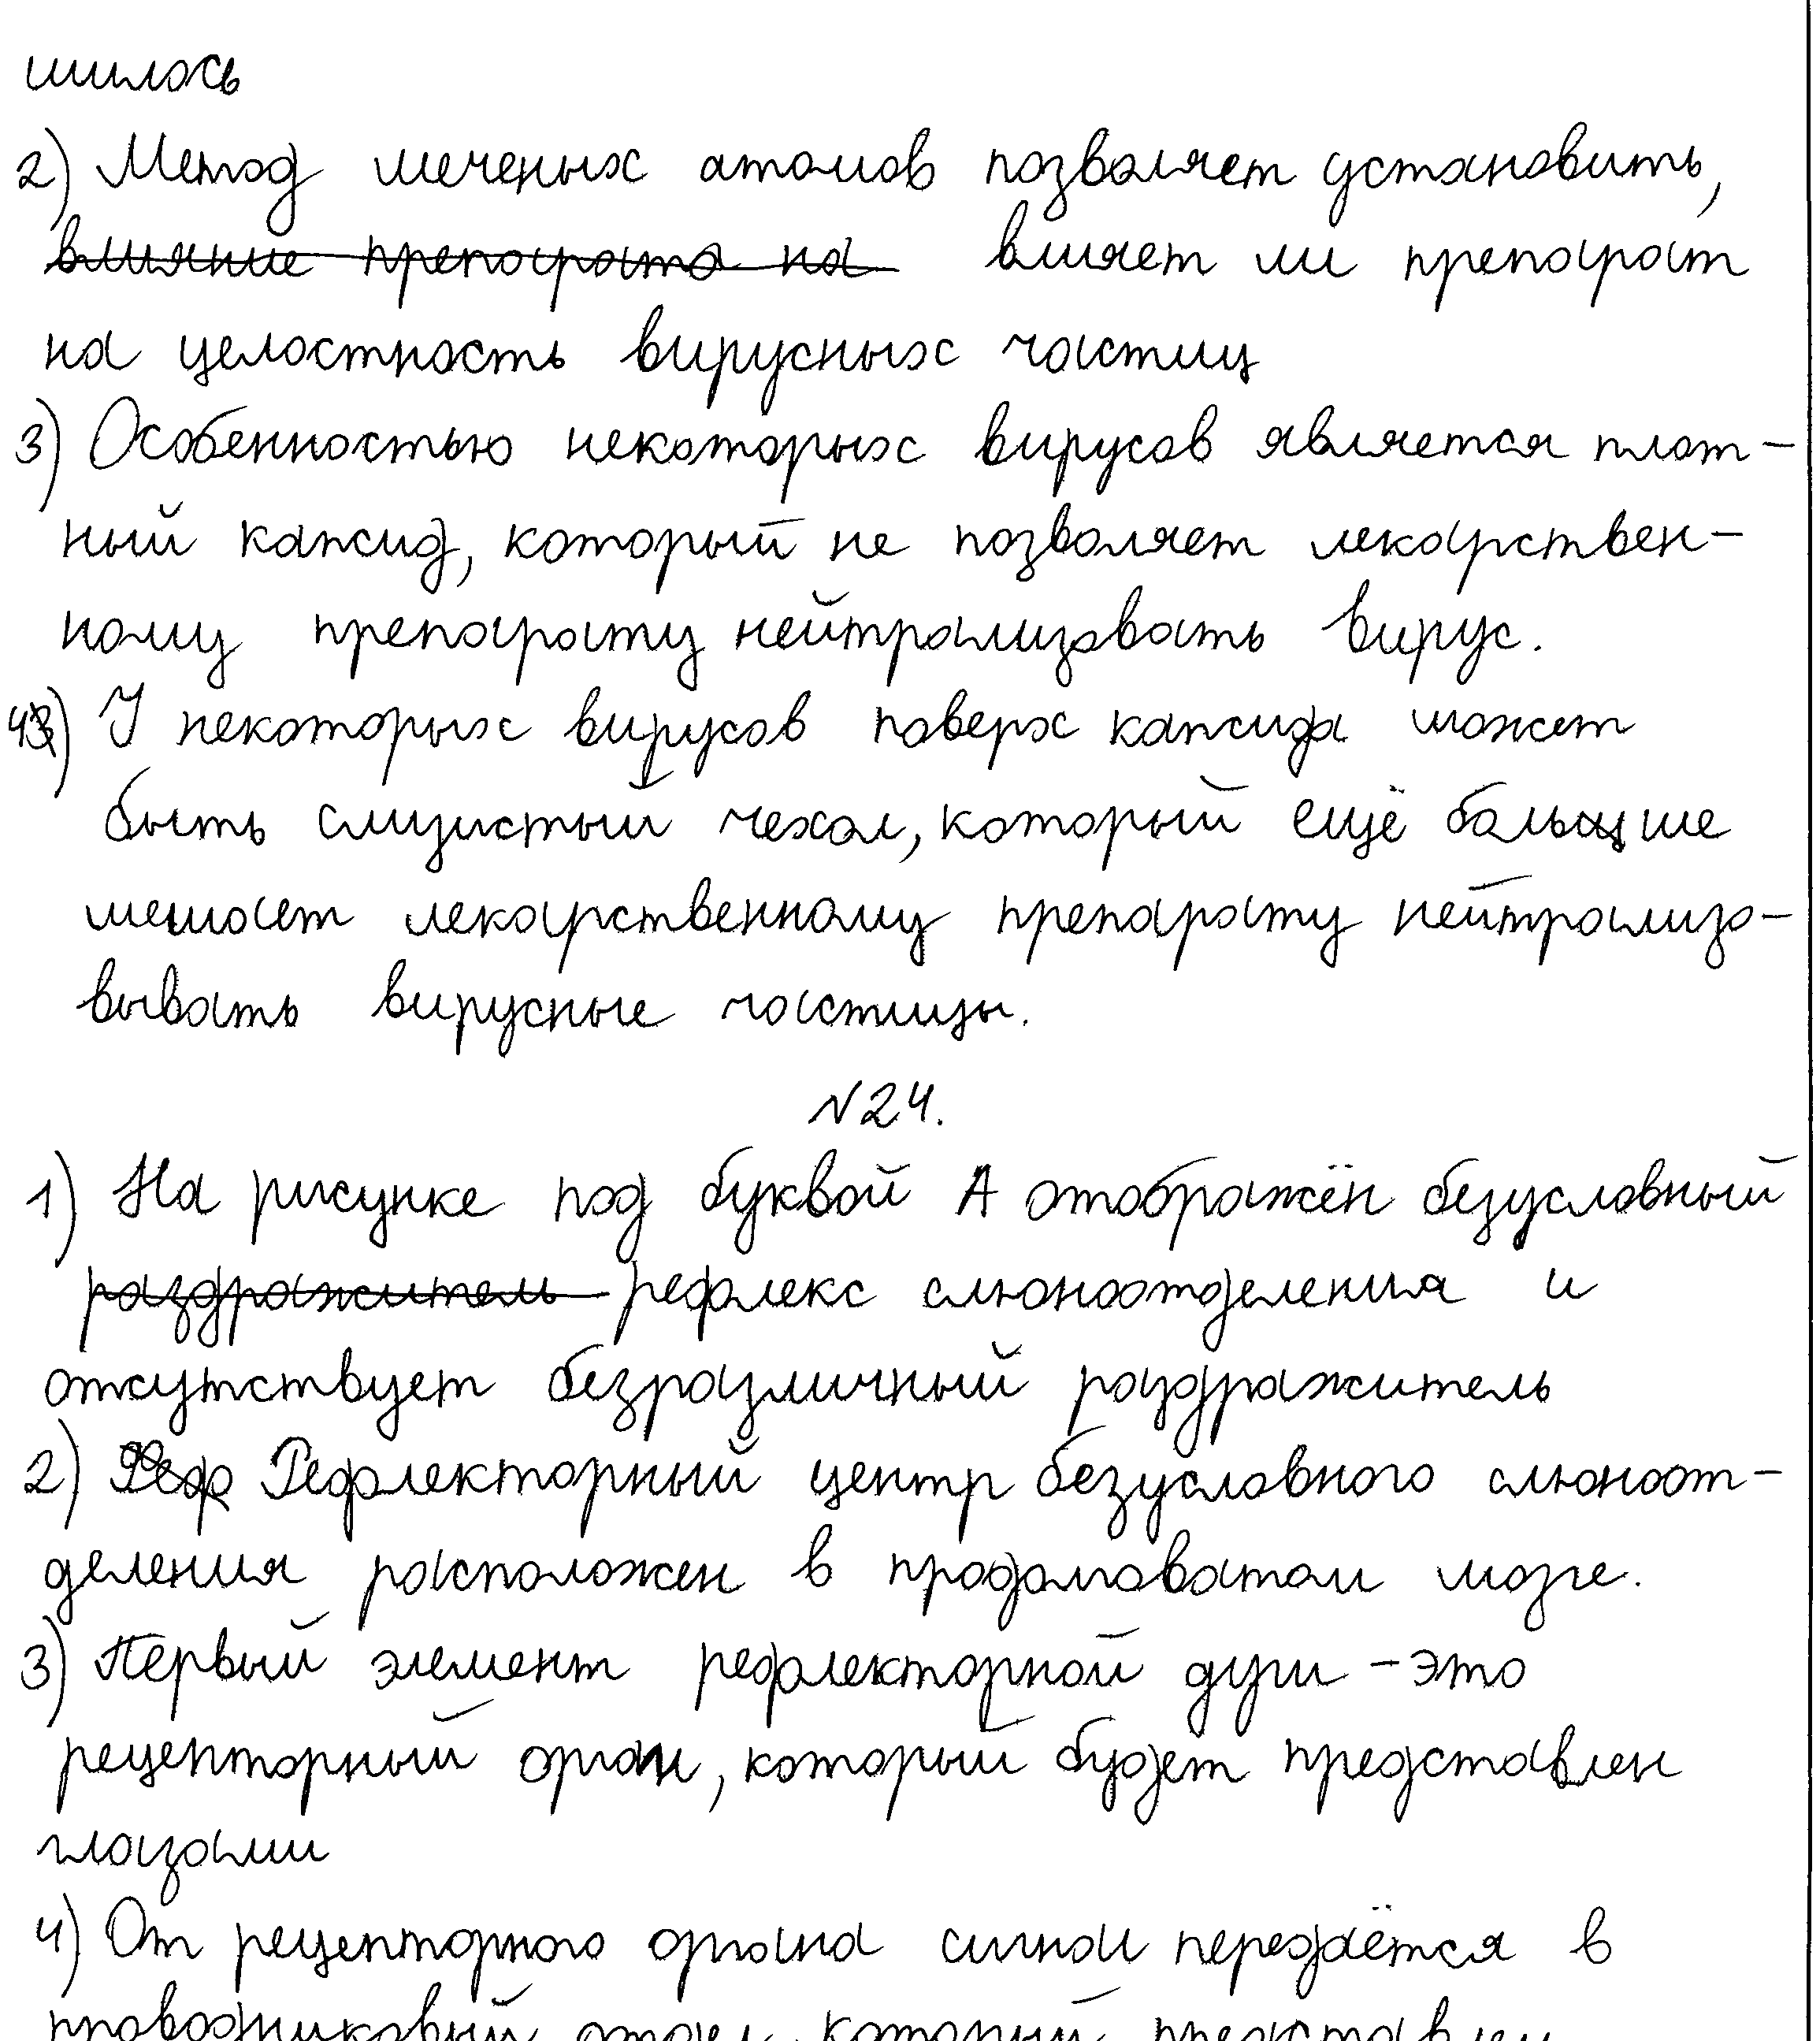 шилось
2) Метод меченых атомов позволяет установить,
влияние препарата на влияет ли препарат
на целостность вирусных частиц
3) Особенностью некоторых вирусов является плот-
ный капсид, который не позволяет лекарствен-
ному препарату нейтрализовать вирус.
4) У некоторых вирусов поверх капсида может
быть слизистый чехол, который ещё больше
мешает лекарственному препарату нейтрализо-
вывать вирусные частицы.
№24.
1) На рисунке под буквой А отображён безусловный
раздражитель рефлекс слюноотделения и
отсутствует безразличный раздражитель
2) Реф Рефлекторный центр безусловного слюноот-
деления расположен в продолговатом мозге.
3) Первый элемент рефлекторной дуги - это
рецепторный орган, который будет представлен
глазами
4) От рецепторного органа сигнал передаётся в
проводниковый отдел, который представлен